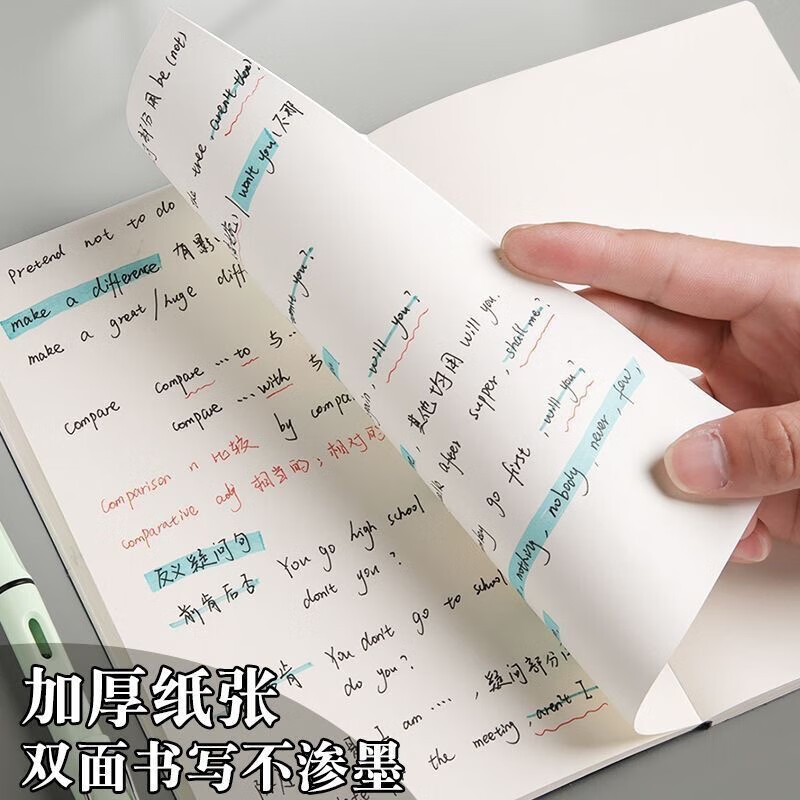 Pretend not to do
make a difference 有影
make a great/huge diff
compare compare … to 与…
compare … with 与
by compa
comparison n 比较
comparative adj 相当的；相对的
反义疑问句 You go high school
前肯后否 don't you?
肯 You don't go to school
do you?
am ....，疑问部分
the meeting, aren't I
部分用 be (not)
tree, aren't there?
/ won't you (不那
will you?
其他均用 will you.
after supper, shall me?
go first, will you?
nothing, nobody, never, few,
加厚纸张
双面书写不渗墨